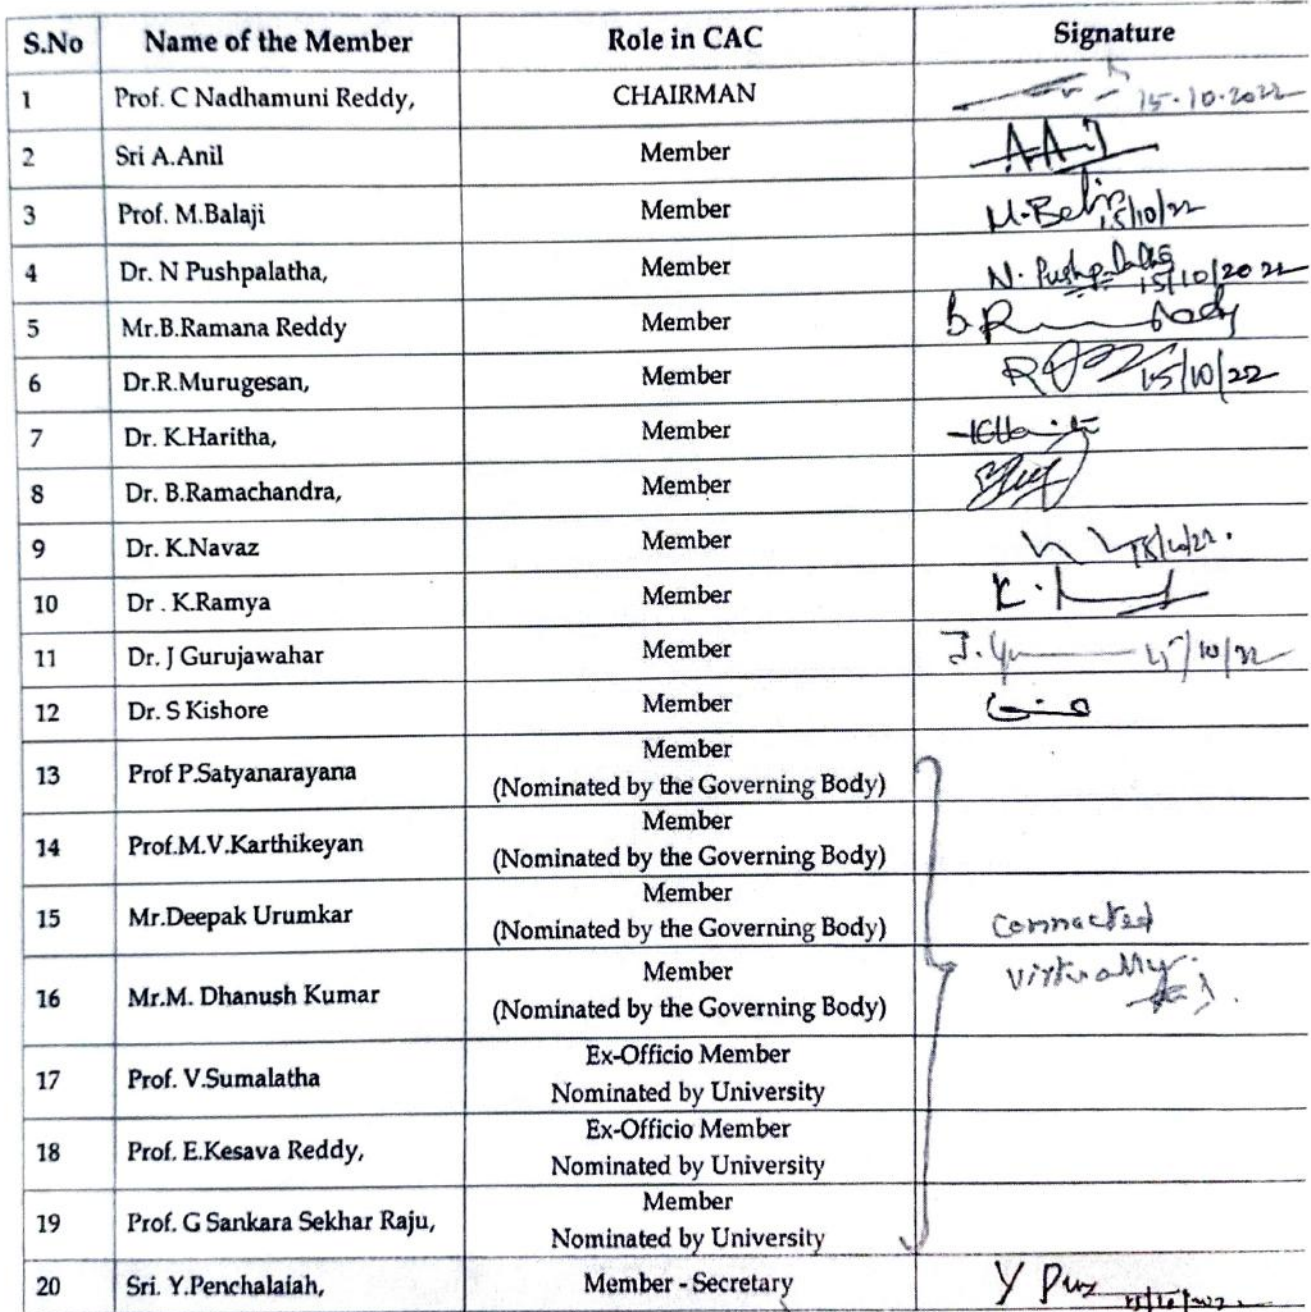 S.No Name of the Member Role in CAC Signature
1 Prof. C Nadhamuni Reddy, CHAIRMAN 15-10-2022
2 Sri A.Anil Member
3 Prof. M.Balaji Member 15/10/22
4 Dr. N Pushpalatha, Member N. Pushpalatha 15/10/2022
5 Mr.B.Ramana Reddy Member
6 Dr.R.Murugesan, Member 15/10/22
7 Dr. K.Haritha, Member
8 Dr. B.Ramachandra, Member
9 Dr. K.Navaz Member
10 Dr . K.Ramya Member
11 Dr. J Gurujawahar Member 15/10/22
12 Dr. S Kishore Member
13 Prof P.Satyanarayana Member
(Nominated by the Governing Body)
14 Prof.M.V.Karthikeyan Member
(Nominated by the Governing Body)
15 Mr.Deepak Urumkar Member
(Nominated by the Governing Body)
Connected
virtually.
16 Mr.M. Dhanush Kumar Member
(Nominated by the Governing Body)
17 Prof. V.Sumalatha Ex-Officio Member
Nominated by University
18 Prof. E.Kesava Reddy, Ex-Officio Member
Nominated by University
19 Prof. G Sankara Sekhar Raju, Member
Nominated by University
20 Sri. Y.Penchalaiah, Member - Secretary